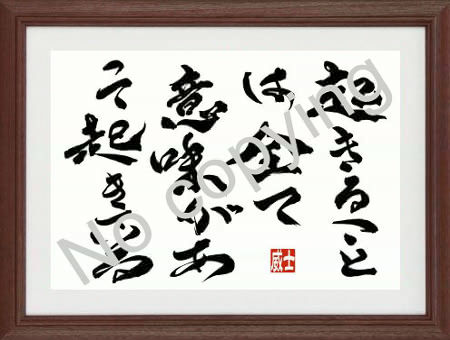 起きること
は、全て
意味があ
って起き
威士